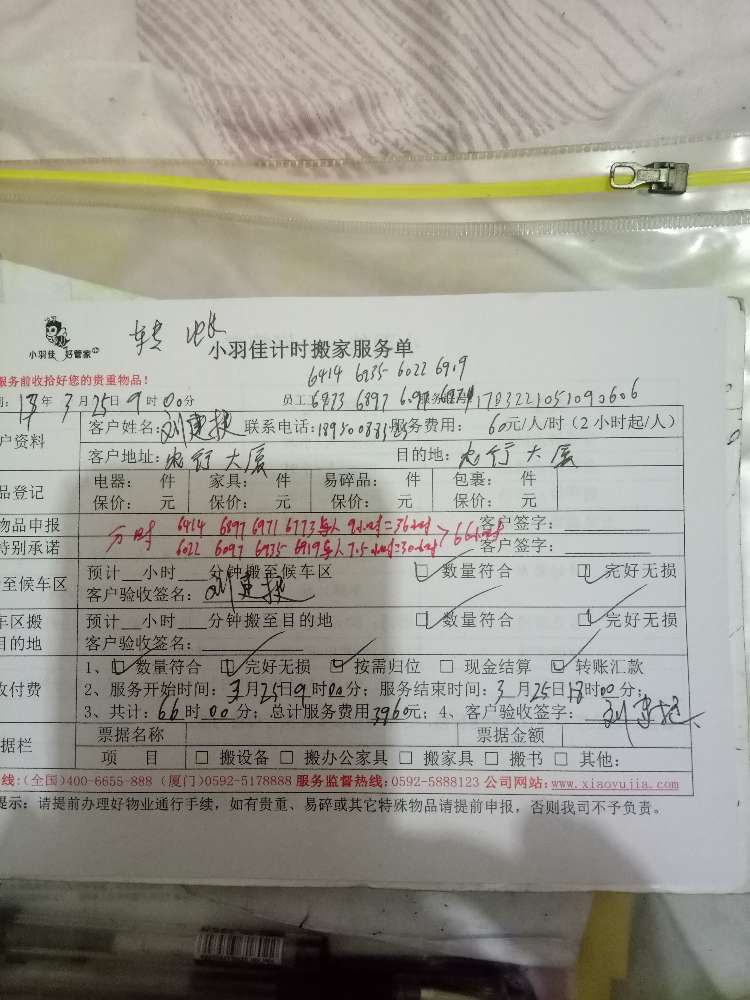 转账
小羽佳 好管家
小羽佳计时搬家服务单
6414 6935 6022 6919
服务前收拾好您的贵重物品！
年3月25日9时00分 员工 6897
户资料 客户姓名： 联系电话： 服务费用：60元/人/时（2小时起/人）
客户地址： 大厦 目的地： 大厦
品登记 电器： 件 家具： 件 易碎品： 件 包裹： 件
保价： 元 保价： 元 保价： 元 保价： 元
物品申报 6414 6897 6971 6773每人9小时=36小时 客户签字：
特别承诺 分时 6022 6097 6935 6919每人7.5小时=30小时 >66小时 客户签字：
至候车区 预计__小时__分钟搬至候车区 □ 数量符合 □ 完好无损
客户验收签名：
车区搬 预计__小时__分钟搬至目的地 □ 数量符合 □ 完好无损
目的地 客户验收签名：
收付费 1、□ 数量符合 □ 完好无损 □ 按需归位 □ 现金结算 □ 转账汇款
2、服务开始时间：3月25日9时00分；服务结束时间：3月25日18时00分；
3、共计：66时00分；总计服务费用3960元；4、客户验收签字：
据栏 票据名称 票据金额
项 目 □ 搬设备 □ 搬办公家具 □ 搬家具 □ 搬书 □ 其他：
线：(全国)400-6655-888 (厦门)0592-5178888 服务监督热线：0592-5888123 公司网站：www.xiaoyujia.com
提示：请提前办理好物业通行手续，如有贵重、易碎或其它特殊物品请提前申报，否则我司不予负责。